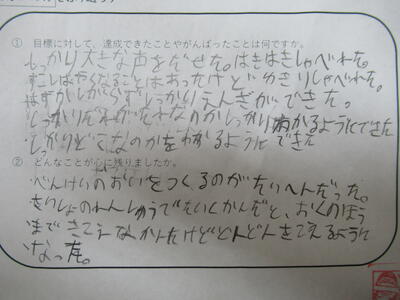 ① 目標に対して、達成できたことやがんばったことは何ですか。
しっかり大きな声をだせた。はきはきしゃべれた。
すこしはやくなることはあったけどゆっきりしゃべれた。
はずかしがらずしっかりえんぎができた。
しっかりだれがだれなのかしっかりわかるようにできた
しっかりどこなのかをわかるようにできた
② どんなことが心に残りましたか。
べんけいのおいをつくるのがたいへんだった。
さいしょのれんしゅうでたいくかんだと、おくのほう
まできこえなかったけどどんどんきこえるように
なった。